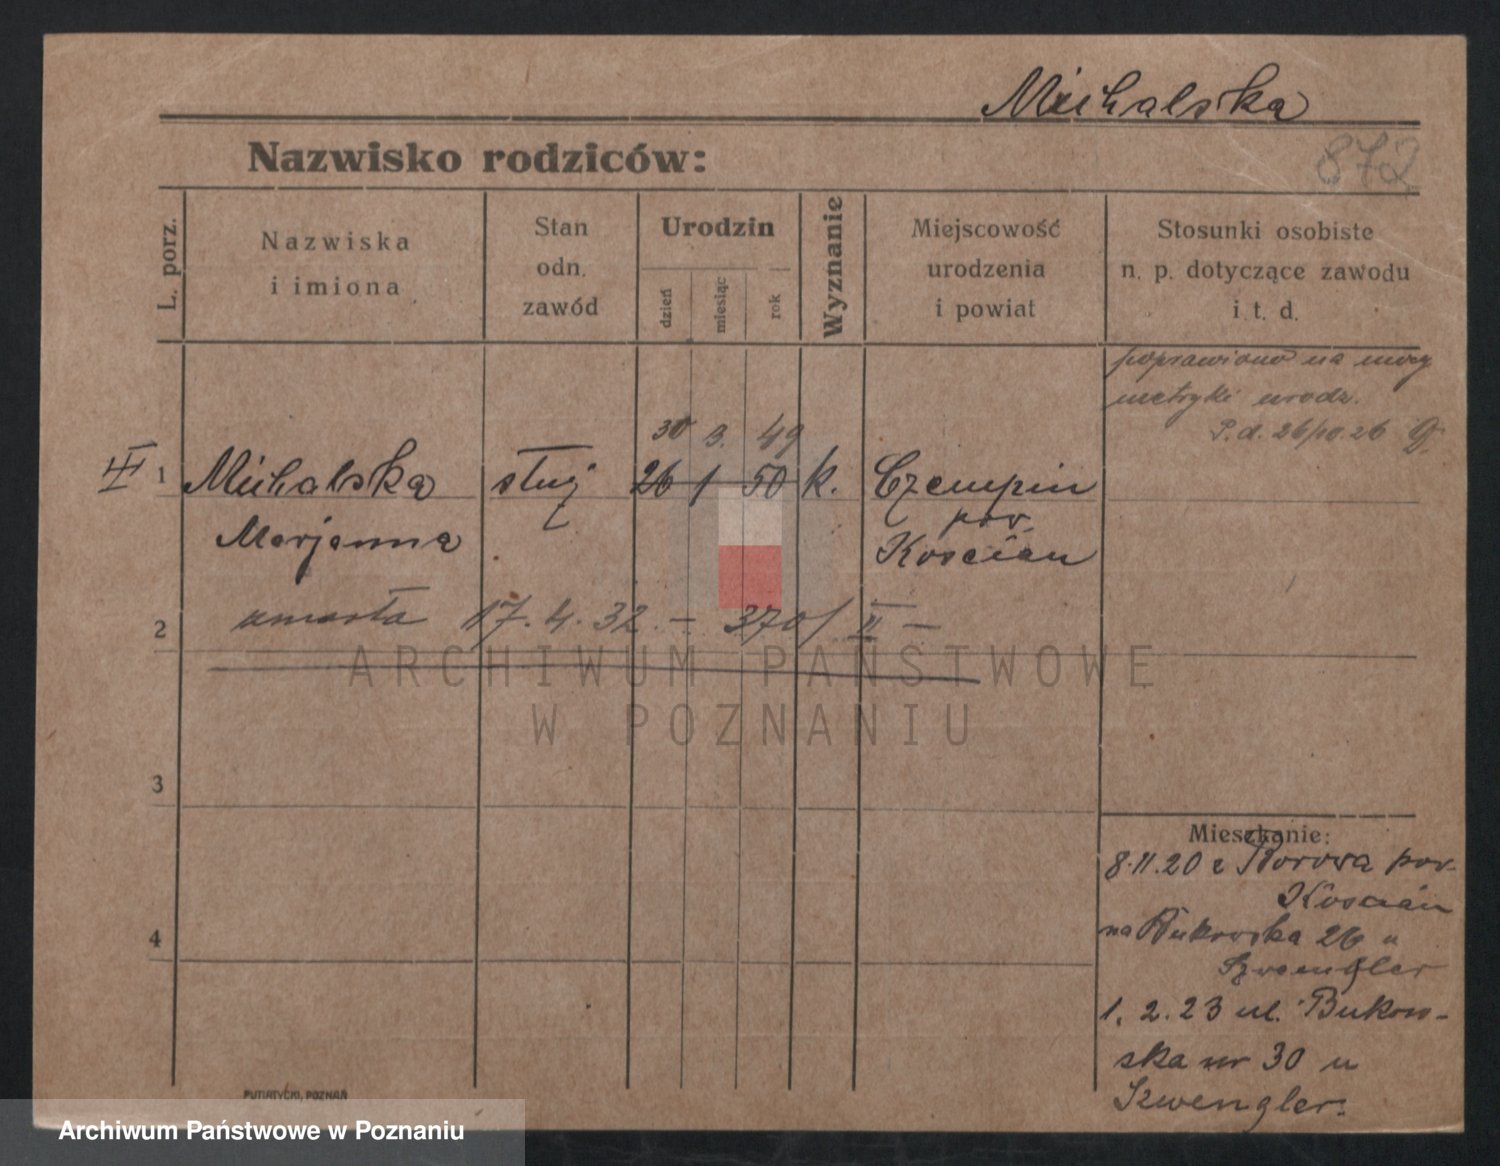 Michalska
Nazwisko rodziców:
872
L. porz.
Nazwiska
i imiona
Stan
odn.
zawód
Urodzin
dzień
miesiąc
rok
Wyznanie
Miejscowość
urodzenia
i powiat
Stosunki osobiste
n. p. dotyczące zawodu
i t. d.
poprawiono na mocy
metryki urodz.
P.d. 26/10.26
30 3. 49
III 1 Michalska służ 26 1 50 k. Czempin
pow.
Marjanna Kościan
2 umarła 17.4.32. — 370/II —
3
4
Mieszkanie:
8.11.20 z Borowa pow.
Kościan
na Bukowska 26 u
Szwengler
1.2.23 ul. Bukow-
ska nr 30 u
Szwengler.
PUTIATYCKI, POZNAŃ
ARCHIWUM PAŃSTWOWE
W POZNANIU
Archiwum Państwowe w Poznaniu